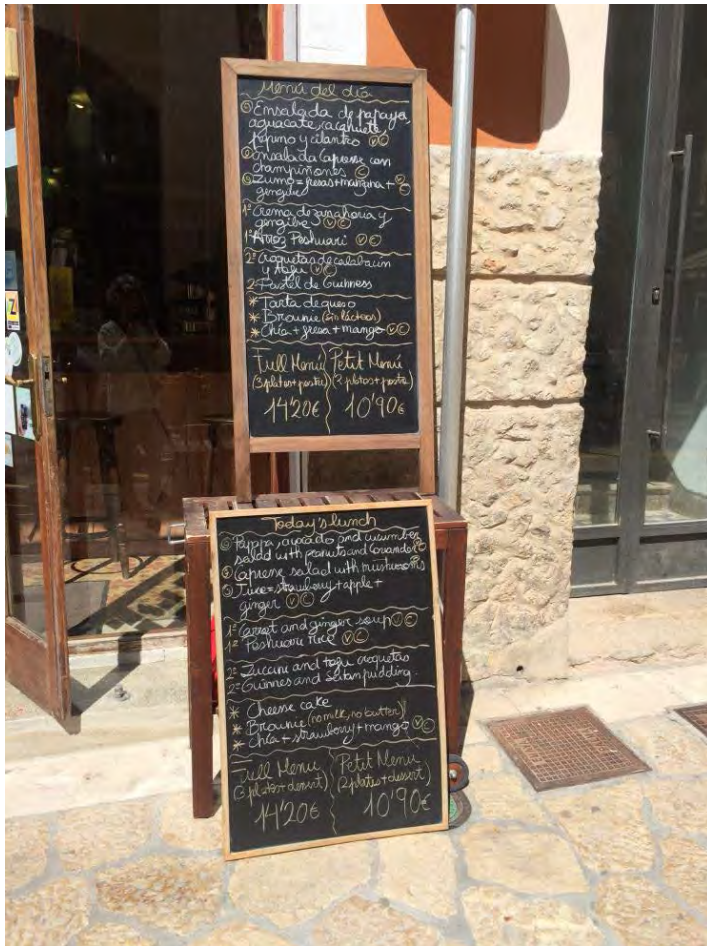 Menú del día
Ⓢ Ensalada de papaya,
aguacate, cacahuete,
pepino y cilantro Ⓥ Ⓒ
Ensalada Caprese con
champiñones Ⓒ
Zumo = fresas + manzana +
gengibre
1º Crema de zanahoria y
gengibre Ⓥ Ⓒ
1º Arroz Peshwari Ⓥ Ⓒ
2º Croquetas de calabacin
y tofu Ⓥ Ⓒ
2º Pastel de Guinness
* Tarta de queso
* Brownie (sin lácteos)
* Chía + fresa + mango Ⓥ Ⓒ
Full Menú
(3 platos + postre)
14'20€
Petit Menú
(2 platos + postre)
10'90€
Today's lunch
Papaya, avocado and cucumber
salad with peanuts and coriander
Caprese salad with mushrooms
Juice = strawberry + apple +
ginger Ⓥ Ⓒ
1º Carrot and ginger soup Ⓥ Ⓒ
1º Peshwari rice Ⓥ Ⓒ
2º Zuccini and tofu croquetas
2º Guinnes and Seitan pudding
* Cheese cake
* Brownie (no milk, no butter)
* Chía + strawberry + mango Ⓥ Ⓒ
Full Menu
(3 plates + dessert)
14'20€
Petit Menu
(2 plates + dessert)
10'90€